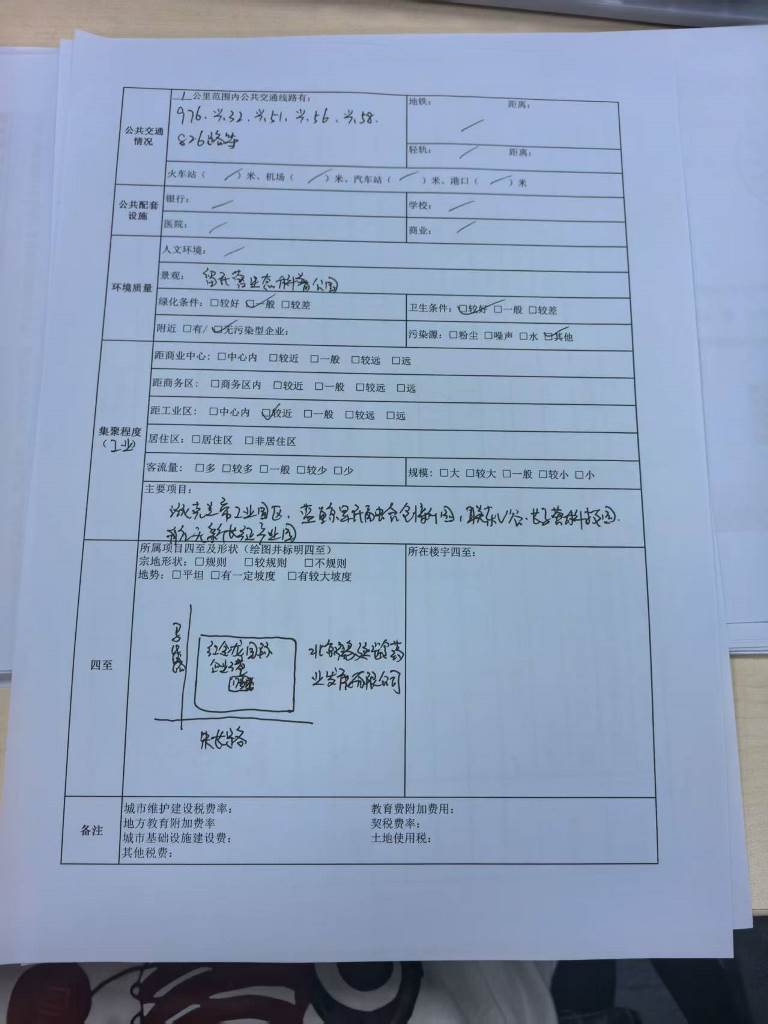 公共交通情况
1 公里范围内公共交通线路有：
976、兴32、兴51、兴56、兴58、
826路等
地铁： 距离：
轻轨： 距离：
火车站（ ）米、机场（ ）米、汽车站（ ）米、港口（ ）米
公共配套设施
银行： 学校：
医院： 商业：
环境质量
人文环境：
景观： 留民营生态科普公园
绿化条件：□较好 □一般 □较差 卫生条件：□较好 □一般 □较差
附近 □有/□无污染型企业： 污染源：□粉尘 □噪声 □水 □其他
集聚程度
（工业）
距商业中心：□中心内 □较近 □一般 □较远 □远
距商务区：□商务区内 □较近 □一般 □较远 □远
距工业区：□中心内 □较近 □一般 □较远 □远
居住区：□居住区 □非居住区
客流量：□多 □较多 □一般 □较少 □少 规模：□大 □较大 □一般 □较小 □小
主要项目：
工业园区、创新园，联东U谷·长子营科技园、
航天新长征产业园
四至
所属项目四至及形状（绘图并标明四至）
宗地形状：□规则 □较规则 □不规则
地势：□平坦 □有一定坡度 □有较大坡度
所在楼宇四至：
企业
业发展有限公司
朱长路
备注
城市维护建设税费率： 教育费附加费用：
地方教育附加费率 契税费率：
城市基础设施建设费： 土地使用税：
其他税费：